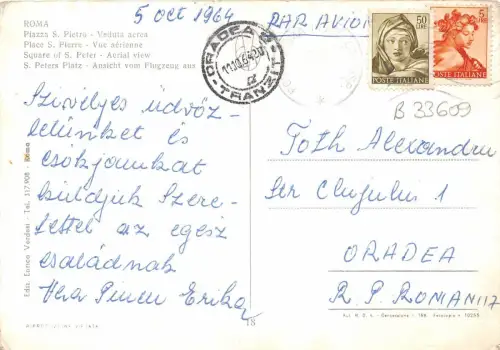 ROMA
Piazza S. Pietro - Veduta aerea
Place S. Pierre - Vue aérienne
Square of S. Peter - Aerial view
S. Peters Platz - Ansicht vom Flugzeug aus
5 OCT 1964
PAR AVION
ORADEA
TRANZIT
50 LIRE
POSTE ITALIANE
5 LIRE
POSTE ITALIANE
B 33609
Szivélyes üdvöz-
letünket és
csókjainkat
küldjük szere-
tettel az egész
családnak
Vera Erika
Tóth Alexandru
Str Clujului 1
ORADEA
R. P. ROMANIA
Ediz. Enrico Verdesi - Tel. 117.908 - Roma
18